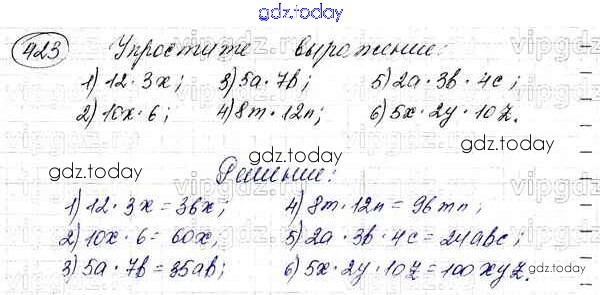 gdz.today
423 Упростите выражение:
1) 12 · 3x; 3) 5a · 7b; 5) 2a · 3b · 4c;
2) 10x · 6; 4) 8m · 12n; 6) 5x · 2y · 10z.
gdz.today gdz.today gdz.today
Решение:
1) 12 · 3x = 36x; 4) 8m · 12n = 96mn;
2) 10x · 6 = 60x; 5) 2a · 3b · 4c = 24abc;
3) 5a · 7b = 35ab; 6) 5x · 2y · 10z = 100xyz.
gdz.today gdz.today